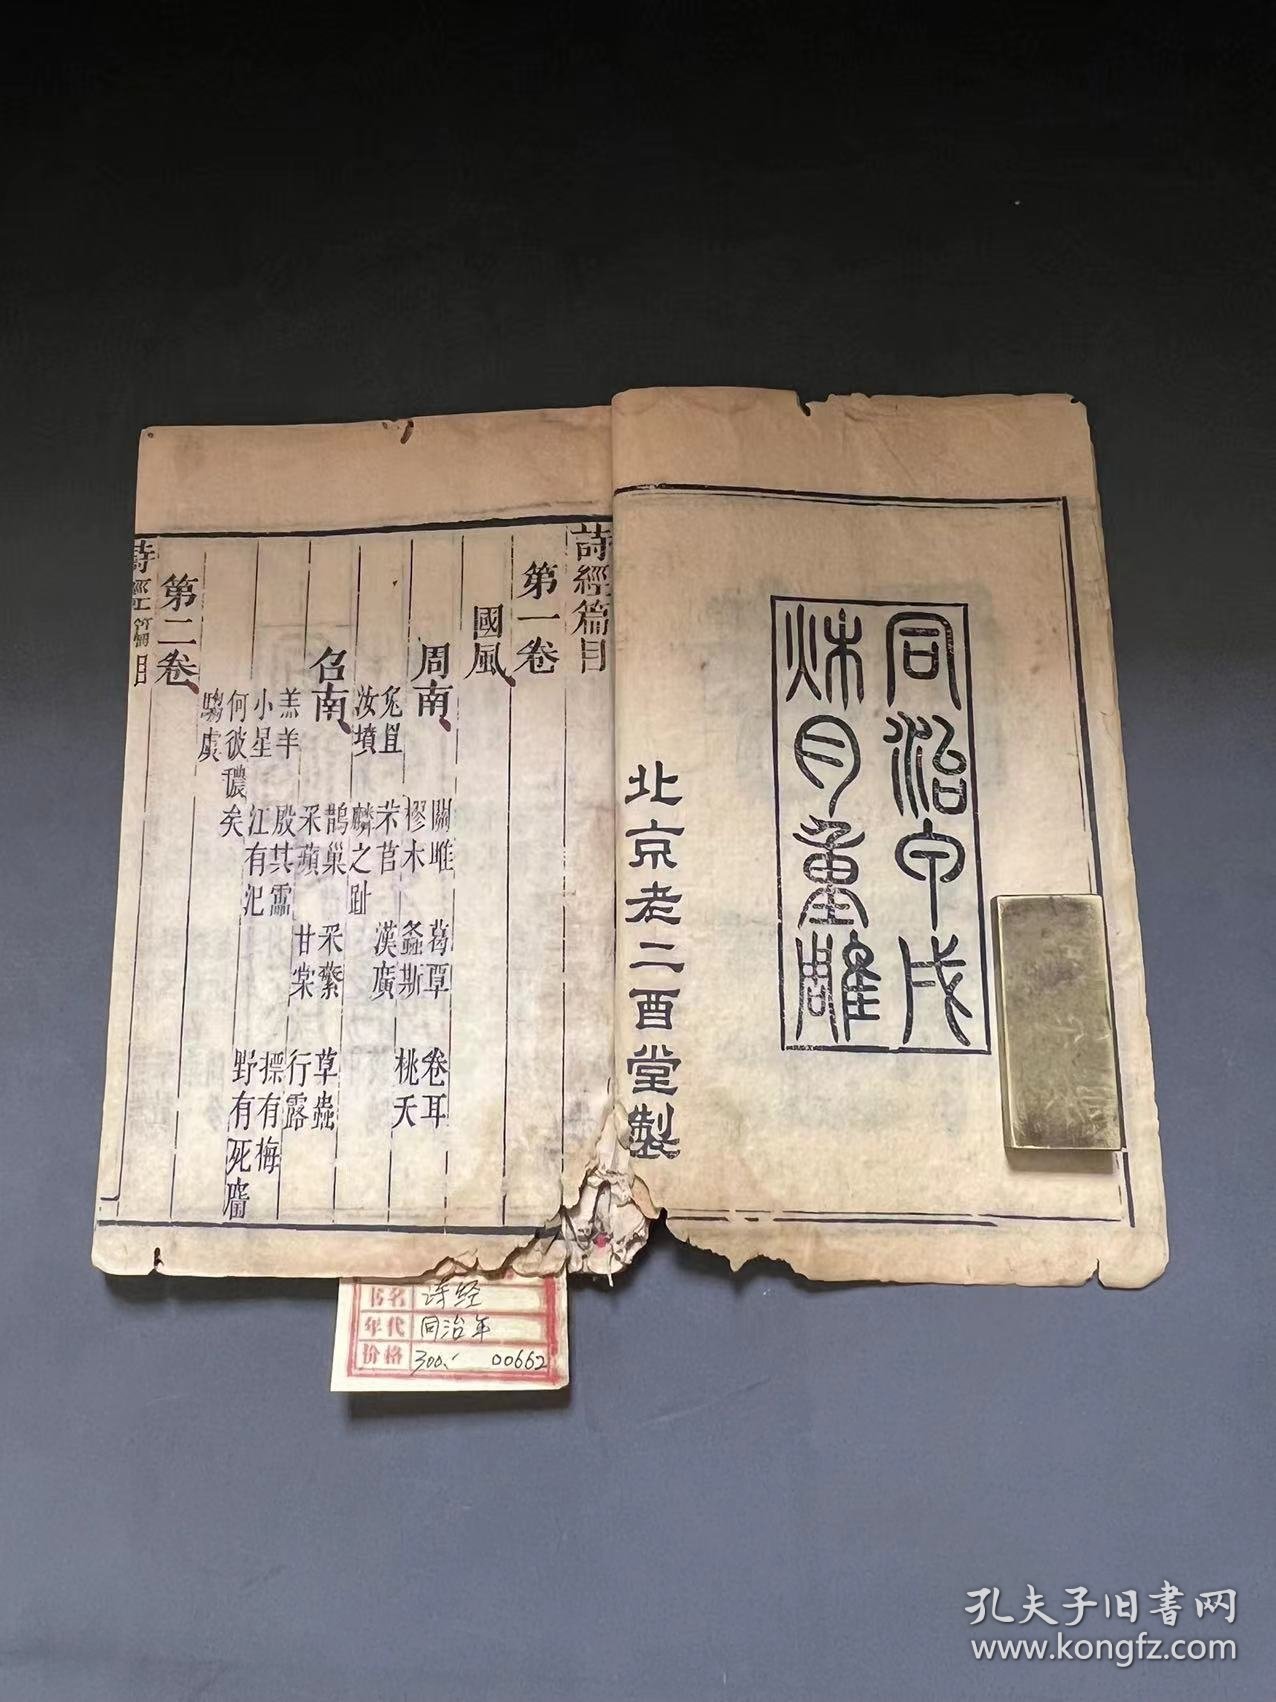 同治甲戌
秌月重雕
北京老二酉堂製
詩經篇目
第一卷
國風
周南 關雎 葛覃 卷耳
樛木 螽斯 桃夭
兔罝 芣苢 漢廣
汝墳 麟之趾
召南 鵲巢 采蘩 草蟲
采蘋 甘棠 行露
羔羊 殷其靁 摽有梅
小星 江有汜 野有死麕
何彼穠矣
騶虞
第二卷
詩經篇目
书名 诗经
年代 同治年
价格 300.- 00662
孔夫子旧書网
www.kongfz.com